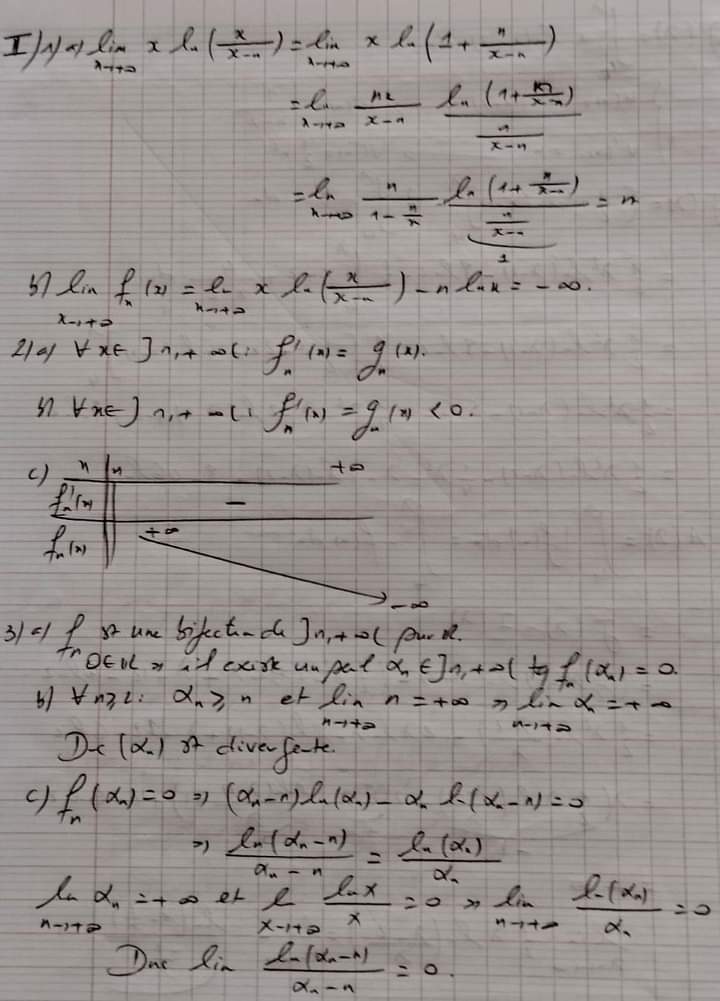 I) 1) a) lim x→+∞ x ln(x/(x-n)) = lim x→+∞ x ln(1 + n/(x-n))
= lim x→+∞ nx/(x-n) · ln(1 + n/(x-n)) / (n/(x-n))
= lim x→+∞ n/(1 - n/x) · ln(1 + n/(x-n)) / (n/(x-n)) = n
1
b) lim x→+∞ fn(x) = lim x→+∞ x ln(x/(x-n)) - n ln x = -∞.
2) a) ∀x∈]n,+∞(: f'n(x) = gn(x).
b) ∀x∈]n,+∞(: f'n(x) = gn(x) < 0.
c) x | n +∞
f'n(x) −
fn(x) +∞ -∞
3) a) fn est une bijection de ]n,+∞( sur ℝ.
0∈ℝ ⇒ il existe un seul αn ∈]n,+∞( tq fn(αn) = 0.
b) ∀n≥2: αn ≥ n et lim n→+∞ n = +∞ ⇒ lim n→+∞ αn = +∞
Dc (αn) est divergente.
c) fn(αn) = 0 ⇒ (αn-n) ln(αn) - αn ln(αn-n) = 0
⇒ ln(αn-n)/(αn-n) = ln(αn)/αn
lim n→+∞ αn = +∞ et lim x→+∞ ln x/x = 0 ⇒ lim n→+∞ ln(αn)/αn = 0
Donc lim ln(αn-n)/(αn-n) = 0.